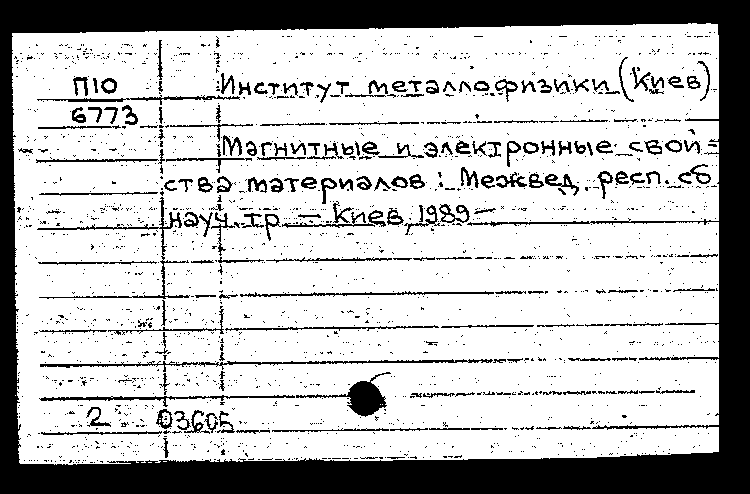 П10 Институт металлофизики (Киев)
6773
Магнитные и электронные свой-
ства материалов : Межвед. респ. сб
науч. тр. — Киев, 1989 —
2 03605